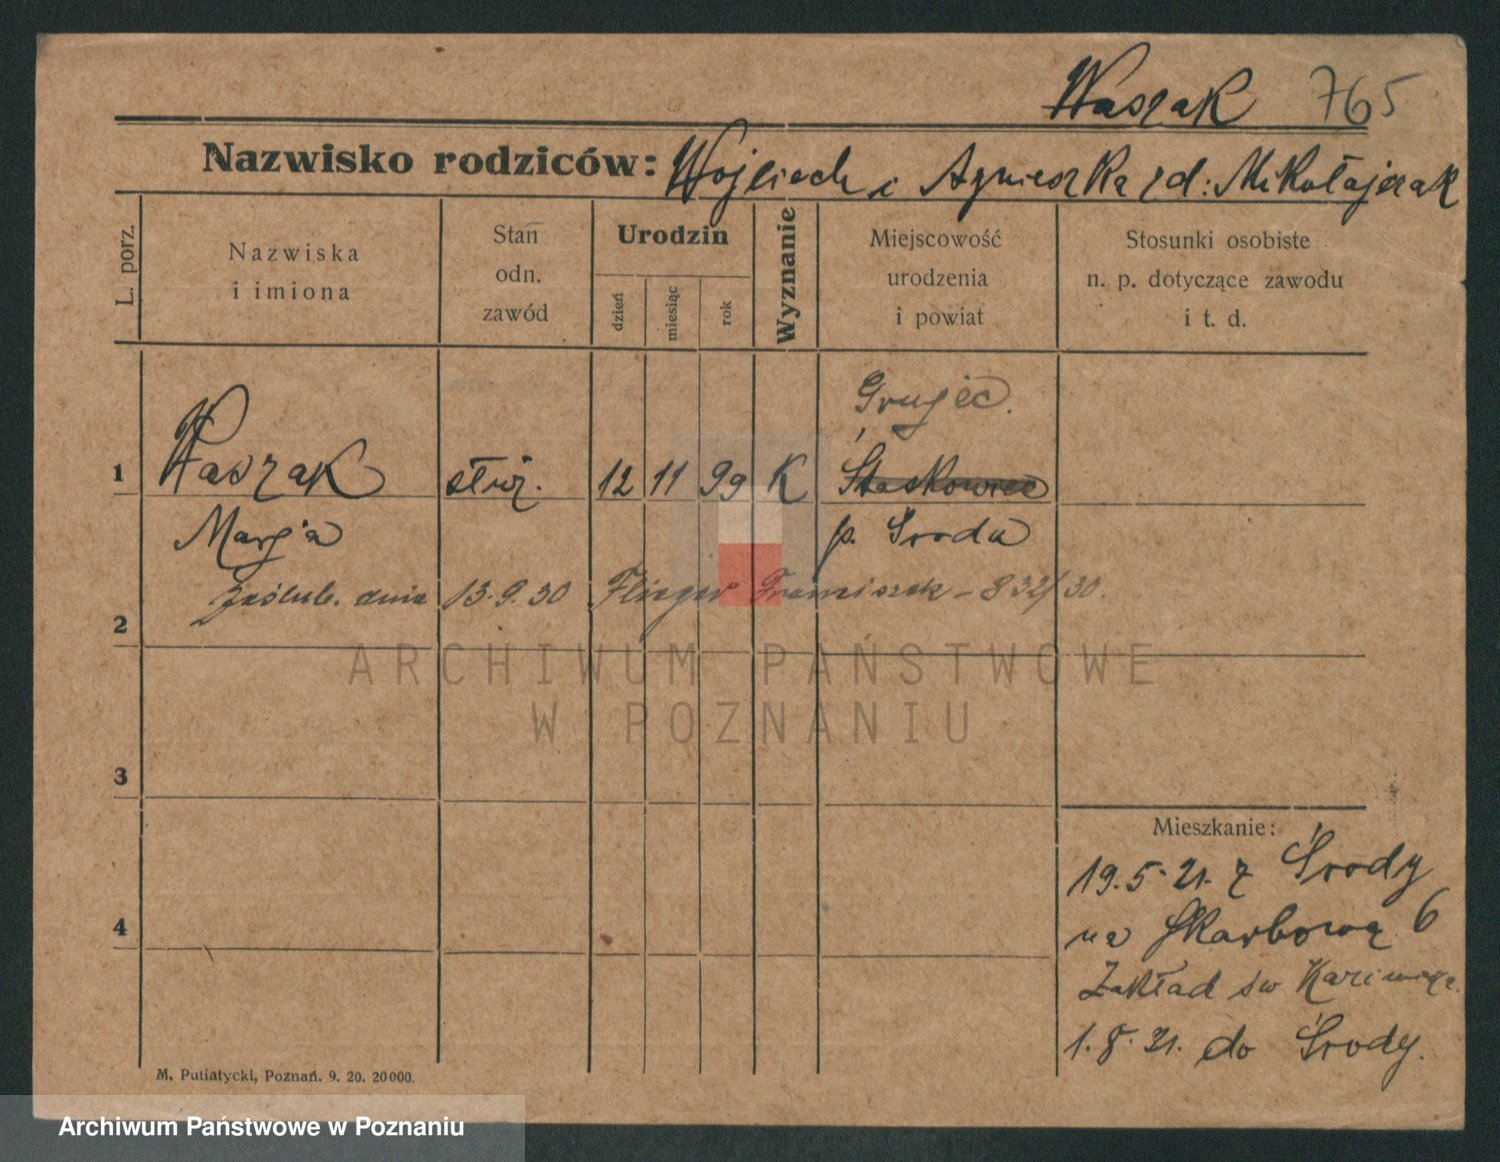 Waszak 765
Nazwisko rodziców: Wojciech i Agnieszka zd: Mikołajczak
L. porz.
Nazwiska
i imiona
Stan
odn.
zawód
Urodzin
dzień
miesiąc
rok
Wyznanie
Miejscowość
urodzenia
i powiat
Stosunki osobiste
n. p. dotyczące zawodu
i t. d.
Grujec.
1 Waszak służ. 12 11 99 K
Marja p. Środa
zaślub. dnia 13.9.30 Flieger Franciszek - 832/30.
2
ARCHIWUM PAŃSTWOWE
W POZNANIU
3
Mieszkanie:
19.5.21. z Środy
na Skarbową 6
4
Zakład św Kazimierza
1.8.21. do Środy.
M. Putiatycki, Poznań. 9. 20. 20000.
Archiwum Państwowe w Poznaniu